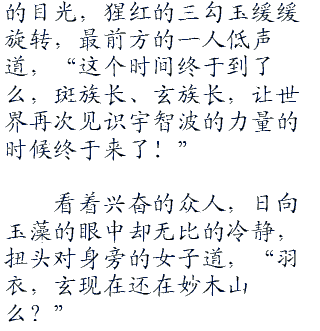 的目光，猩红的三勾玉缓缓
旋转，最前方的一人低声
道，“这个时间终于到了
么，斑族长、玄族长，让世
界再次见识宇智波的力量的
时候终于来了！”
看着兴奋的众人，日向
玉藻的眼中却无比的冷静，
扭头对身旁的女子道，“羽
衣，玄现在还在妙木山
么？”